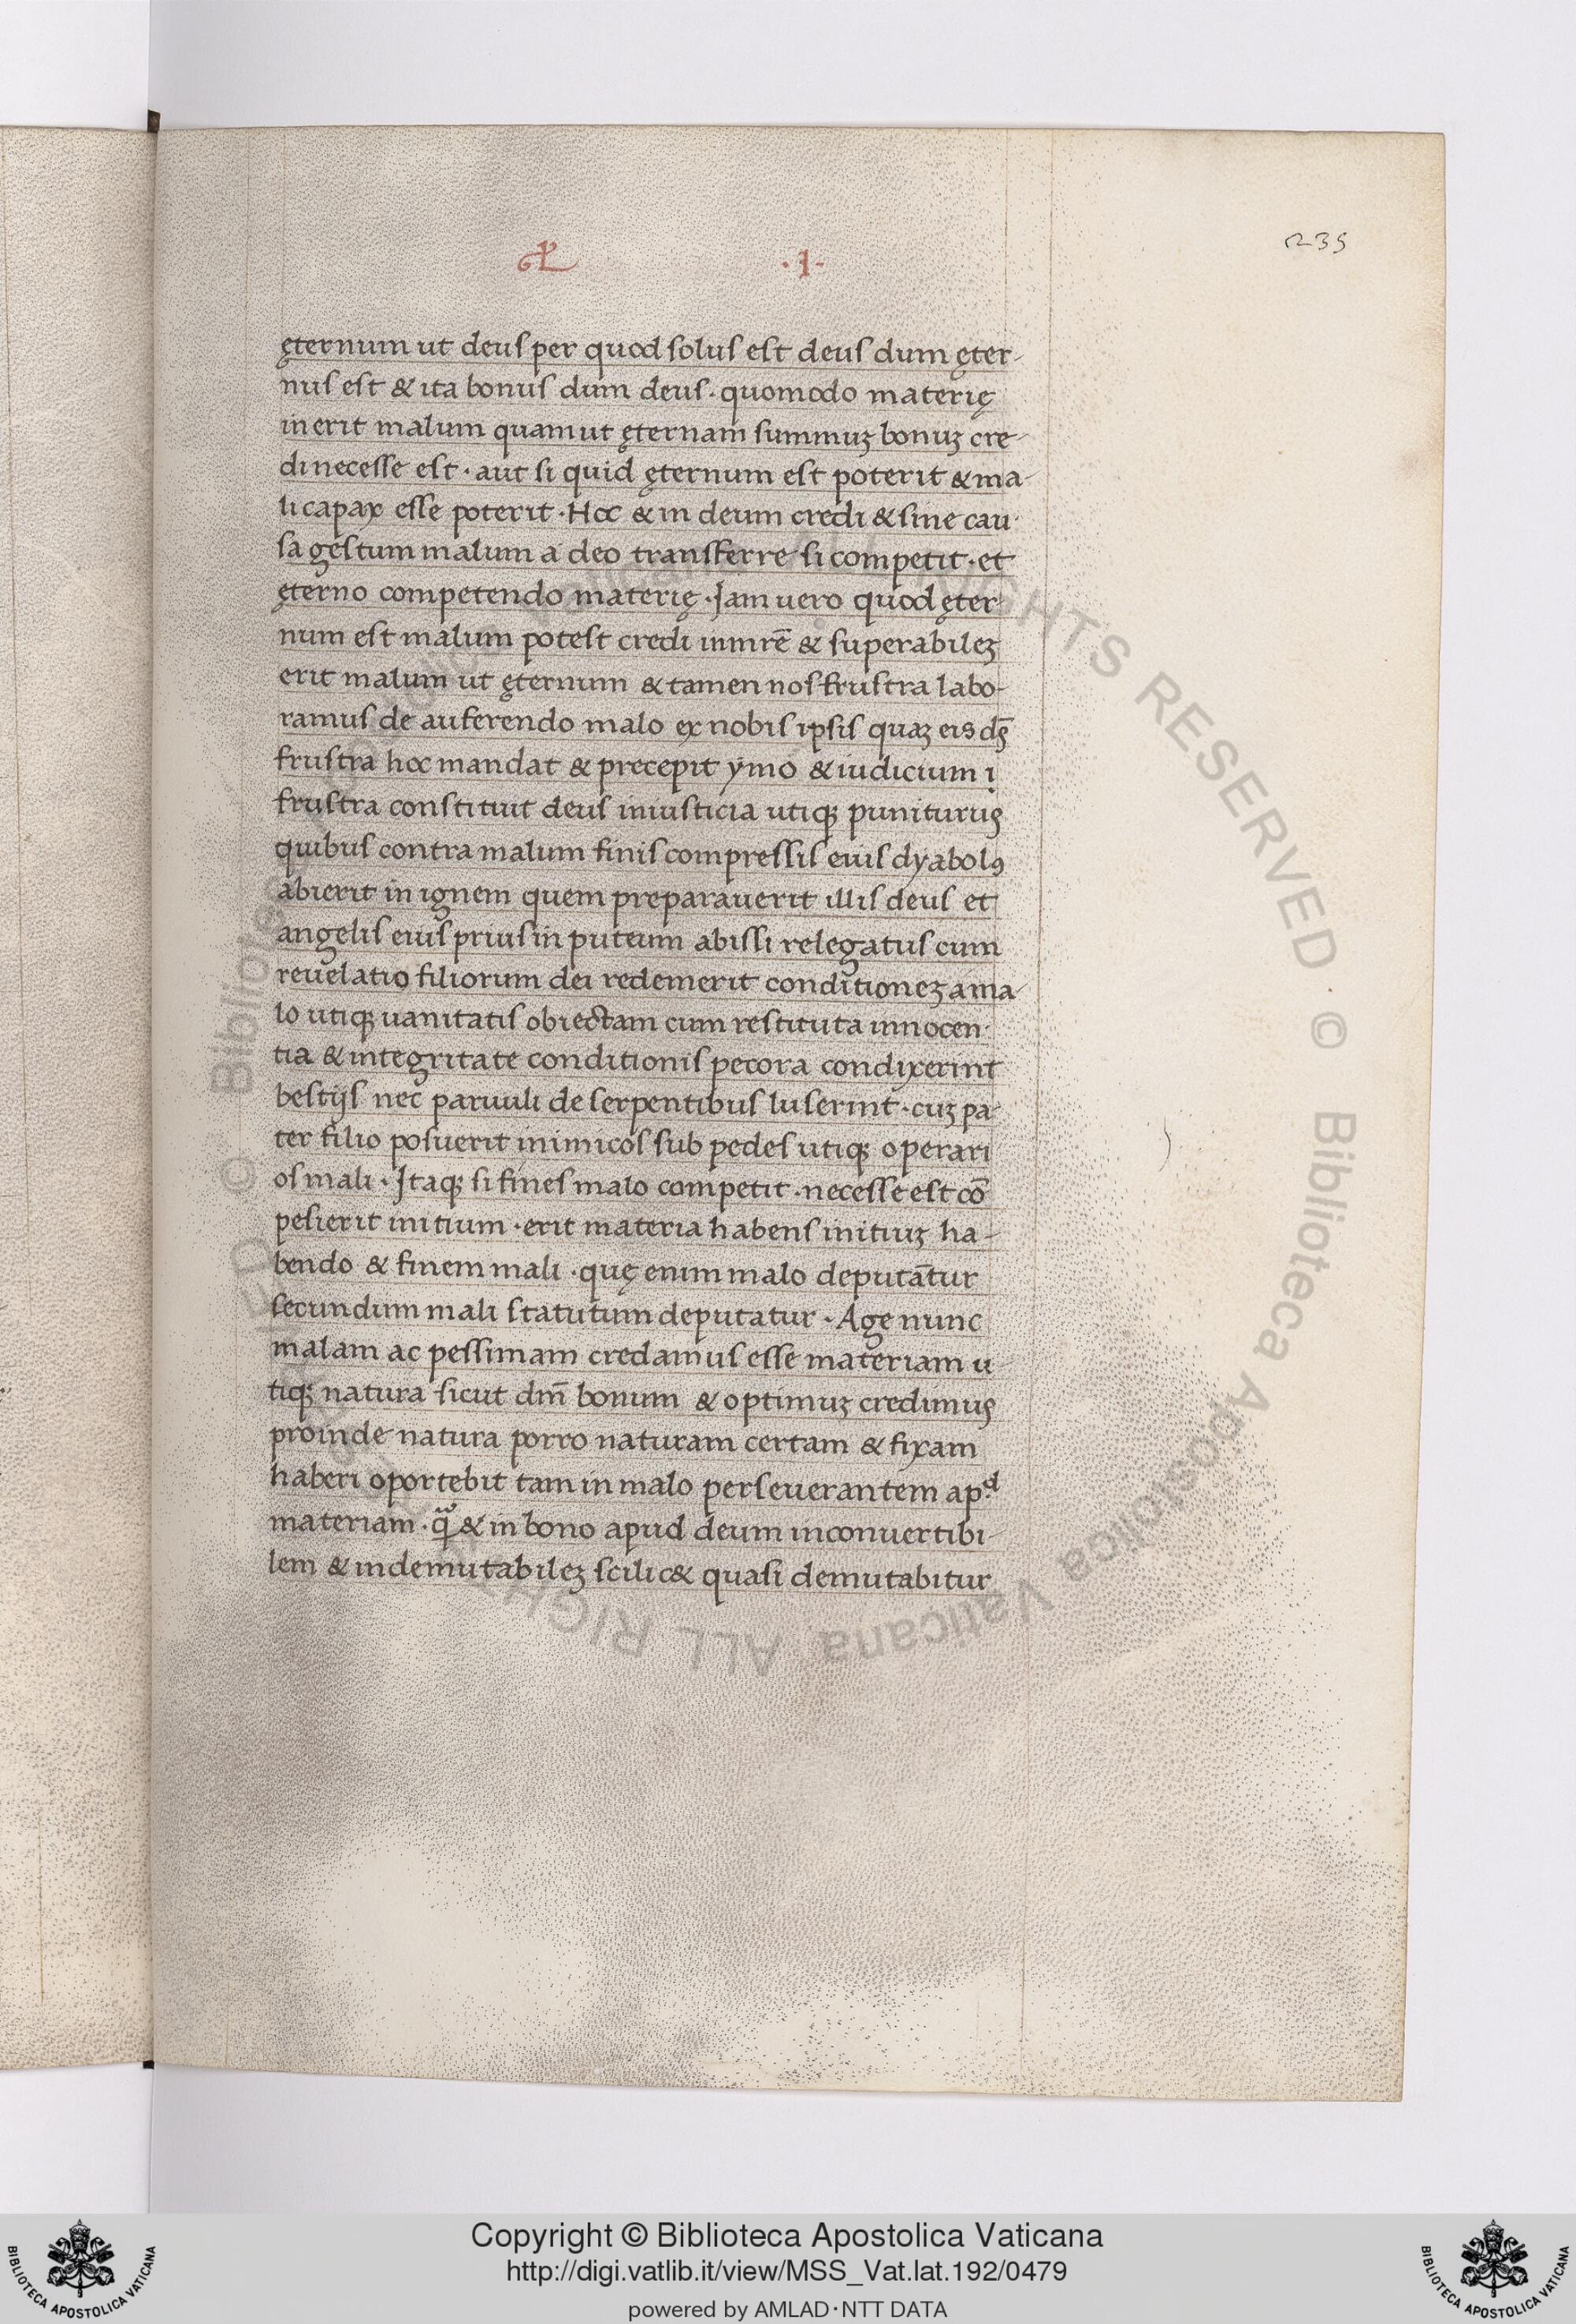 ·I·
235
ęternum ut deus per quod solus est deus dum ęter-
nus est & ita bonus dum deus· quomodo materię
inerit malum quam ut ęternam summuʒ bonuʒ cre-
di necesse est· aut si quid ęternum est poterit & ma-
li capax esse poterit· Hoc & in deum credi & sine cau-
sa gestum malum a deo transferre si competit· et
ęterno competendo materię· Jam uero quod ęter-
num est malum potest credi & superabileʒ
erit malum ut ęternum & tamen nos frustra labo-
ramus de auferendo malo ex nobis ipsis quaʒ eis ds̄
frustra hoc mandat & precepit ymo & iudicium i
frustra constituit deus iniusticia utiqʒ puniturus
quibus contra malum finis compressis eius dyabolꝰ
abierit in ignem quem preparauerit illis deus et
angelis eius prius in puteum abissi relegatus cum
reuelatio filiorum dei redemerit conditioneʒ a ma-
lo utiqʒ uanitatis obiectam cum restituta innocen-
tia & integritate conditionis pecora condixerint
bestijs nec paruuli de serpentibus luserint· cuʒ pa-
ter filio posuerit inimicos sub pedes utiqʒ operari
os mali· Jtaqʒ si fines malo competit· necesse est cō
pesierit initium· erit materia habens initiuʒ ha-
bendo & finem mali· quę enim malo deputātur
secundum mali statutum deputatur· Age nunc
malam ac pessimam credamus esse materiam u-
tiqʒ natura sicut dm̄ bonum & optimuʒ credimus
proinde natura porro naturam certam & fixam
haberi oportebit tam in malo perseuerantem ap.d
materiam· & in bono apud deum inconuertibi-
lem & indemutabileʒ scilic& quasi demutabitur
© Biblioteca Apostolica Vaticana ALL RIGHTS RESERVED
© Biblioteca Apostolica Vaticana ALL RIGHTS RESERVED
Copyright © Biblioteca Apostolica Vaticana
http://digi.vatlib.it/view/MSS_Vat.lat.192/0479
powered by AMLAD·NTT DATA
BIBLIOTECA APOSTOLICA VATICANA
BIBLIOTECA APOSTOLICA VATICANA